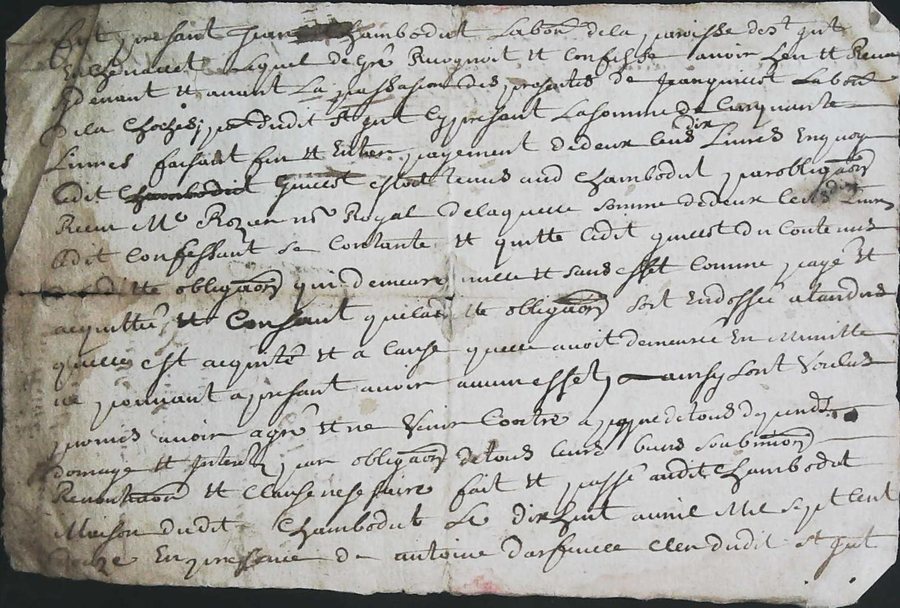 fut presant Jean Chambodut Labor de la paroisse de St Jut
lequel de gré Recognoit et Confesse avoir heu et Receu
sydevant et avant La passasion des presantes de Jean quiot Labor
de la paroisse dudit St Jut Cy presant La somme de Cinquante
Livres faisant fin et Entier payement de deux Cens dix Livres En quoy
Ledit quiot estoit tenus aud Chambodut par obligaon
Receu Me Rozier nore Royal de laquelle somme de deux Cens dix Livres
Ledit Confessant se Contante et quitte Ledit quiot du Contenus
obligaon qui demeure nulle et sans effet Comme payé et
acquittée et Consant que lad obligaon soit Endossée atandus
quelle est acquitée et a Cause quelle avoit demeurée En Minutte
ne pouvant apresant avoir aucun effet, ainsy Lont Voulus
promis avoir agré et ne Venir Contre a peyne de tous depends
domage et Interest par obligaon de tous leurs biens soubmion
Renontiaon et Clause nesesaire fait et passé audit Chambodut
Maison dudit Chambodut Le dix huit avril Mil sept Cent
En presance de antoine Clerc dudit St Jut